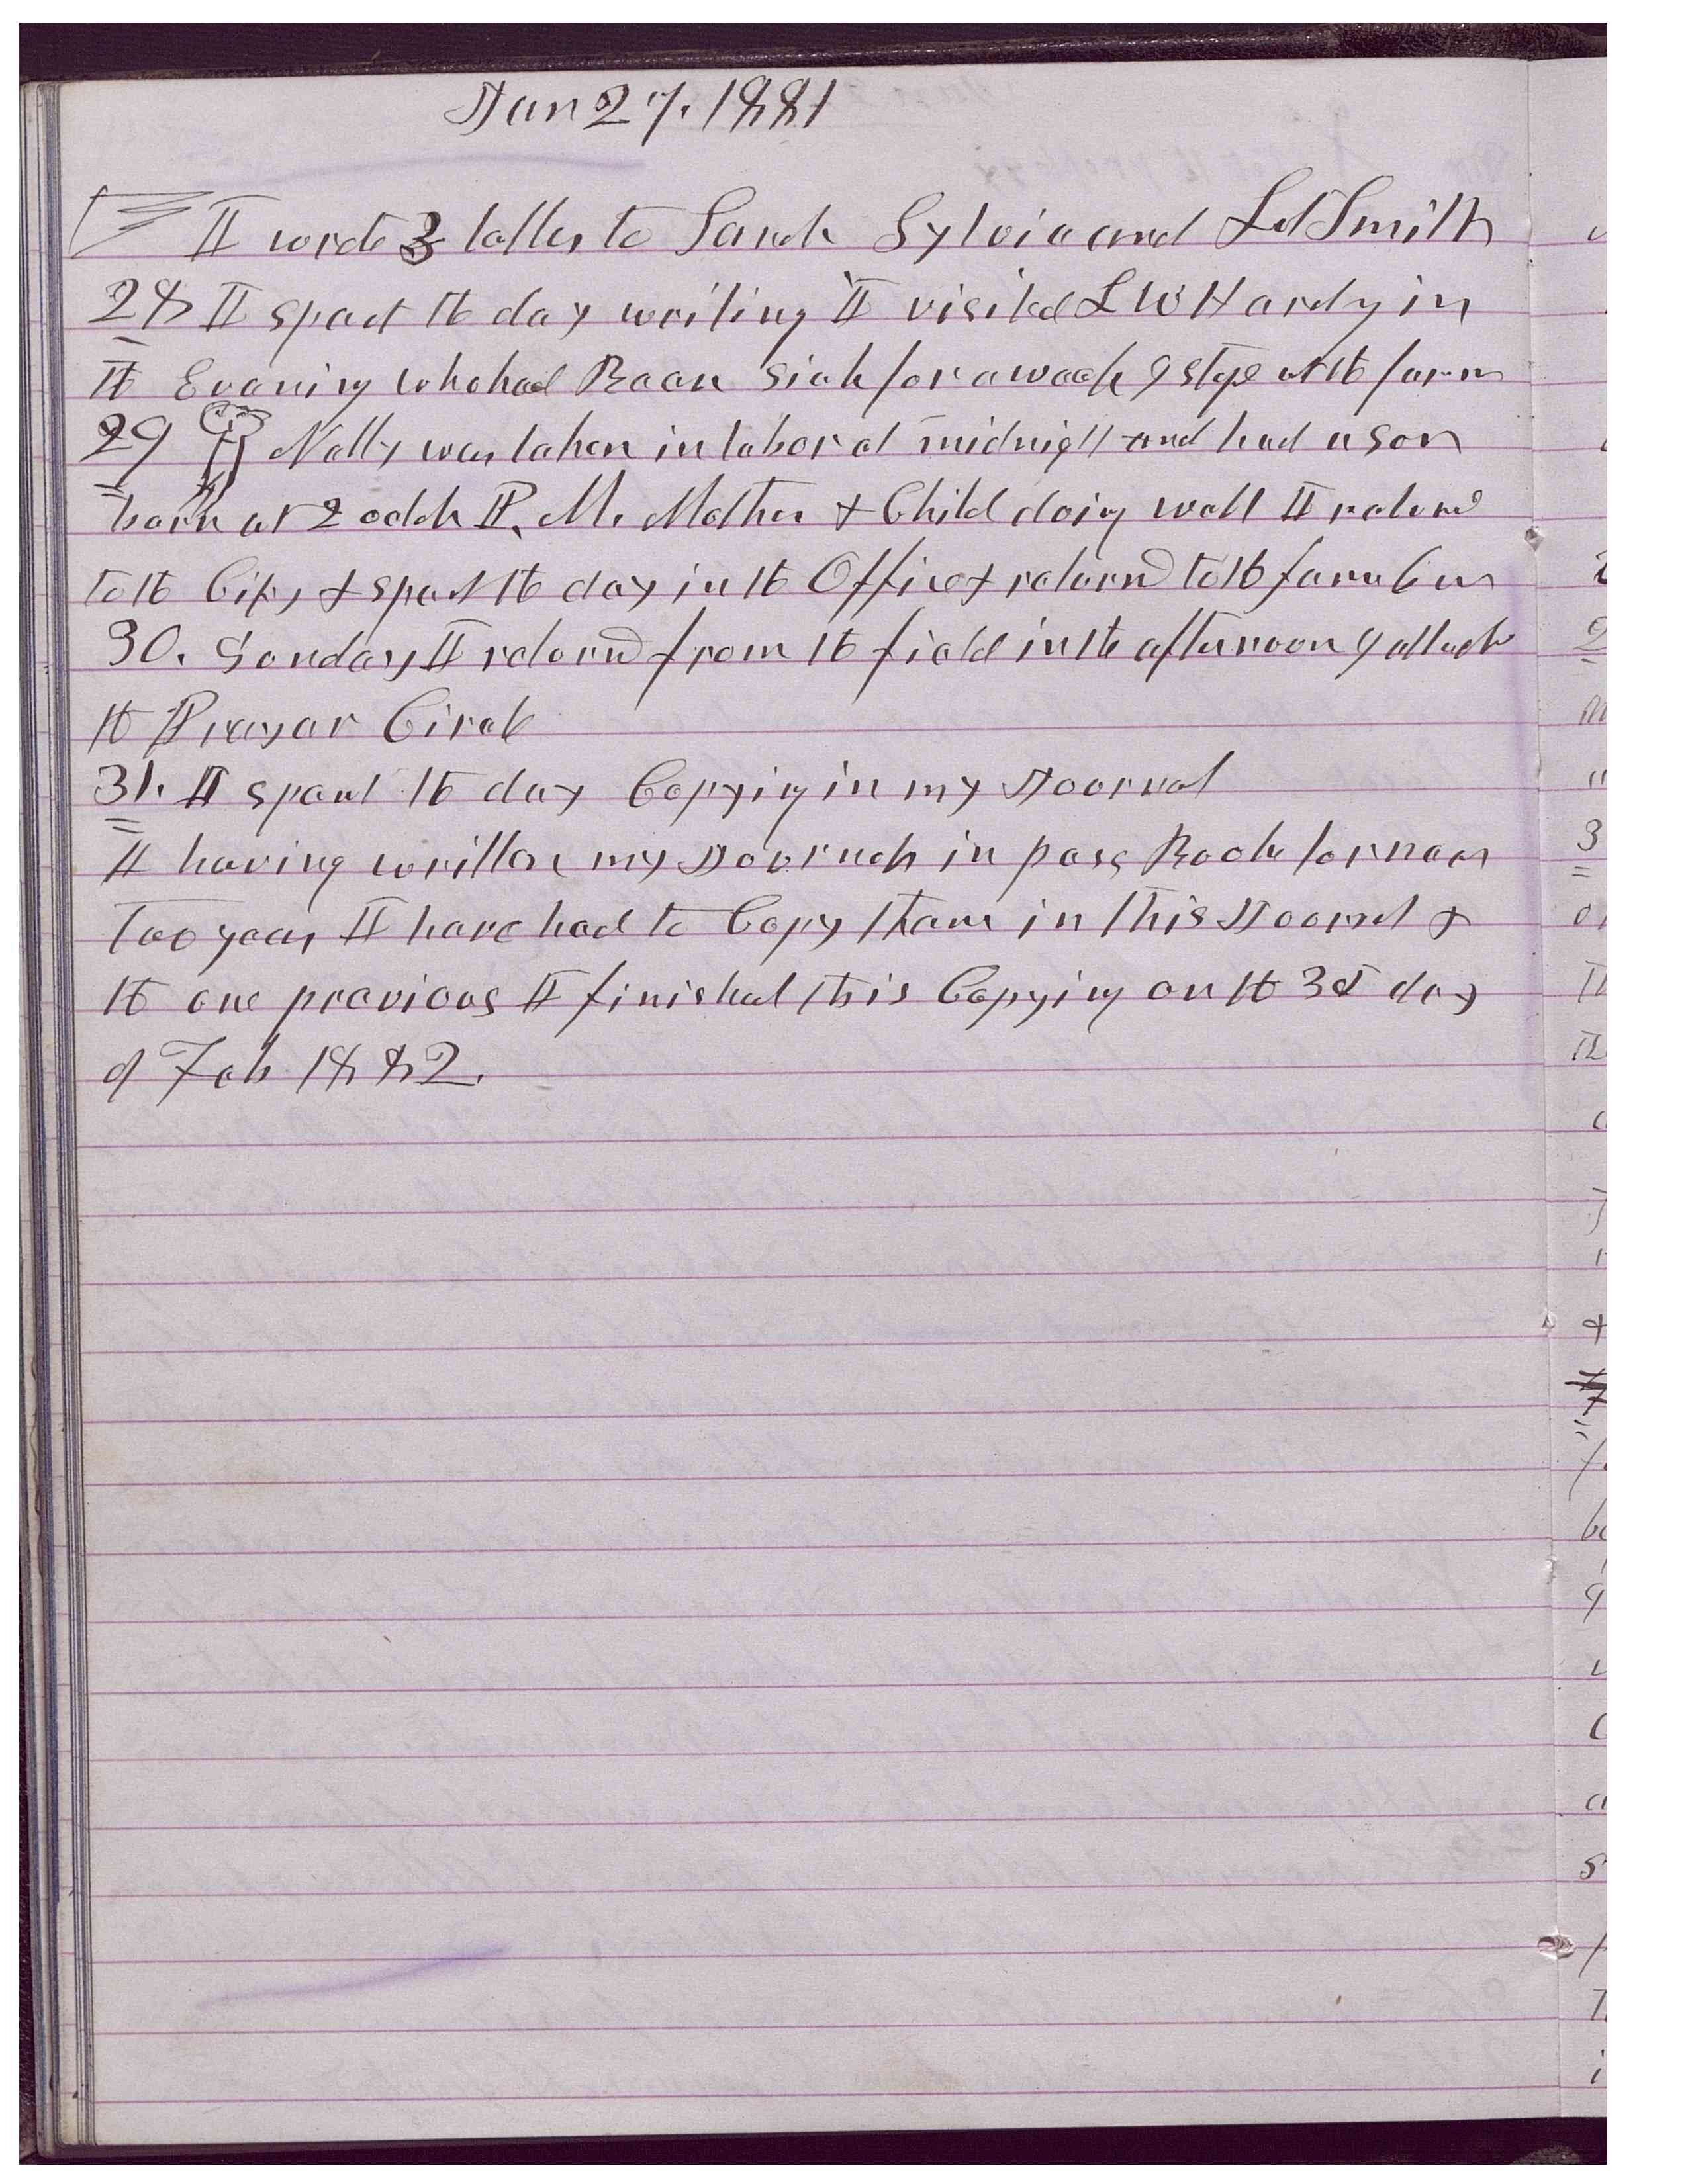 Jan 27. 1881
I wrote 3 letters to Sarah Sylvia and Lot Smith
28 I spent the day writing I visited L W Hardy in
the Evening who had Been sick for a week & stope at the farm
29 Nelly was taken in labor at midnight and had a son
born at 2 oclok P. M. Mother & Child doing well I returnd
to the City & spent the day in the Office & returnd to the farm
30. Sunday I returnd from the field in the afternoon & attend
the Prayer Circle
31. I spent the day Copying in my Journal
I having written my Journals in pass Books for near
Two years I have had to Copy them in this Journal &
the one previous I finished this Copying on the 3d day
of Feb 1882.